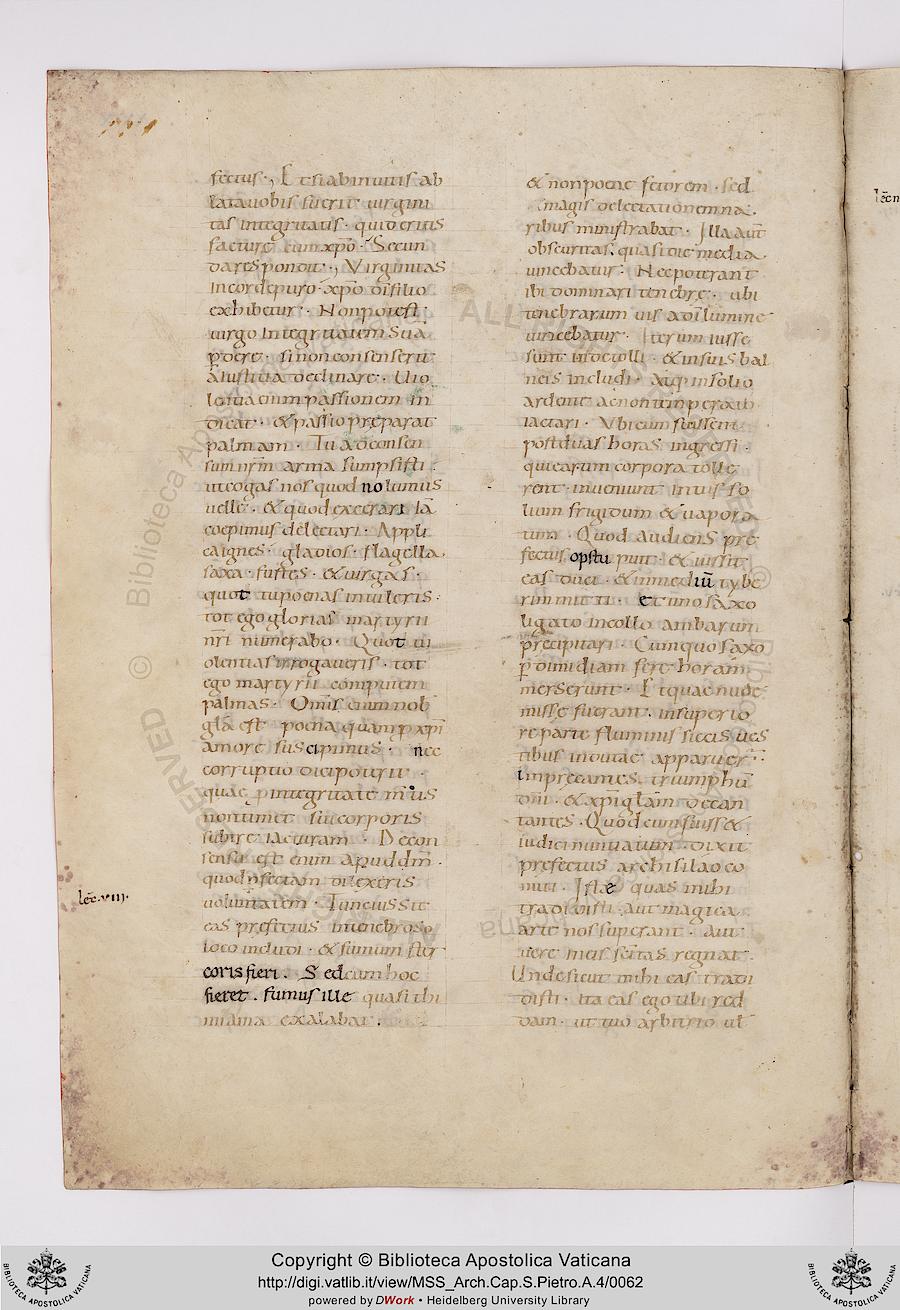 fectus· Et si ab inuitis ab
lata uobis fuerit uirgini
tas integritatis· quid eritis
facture cum xp̄o· Secun
da respondit· Virginitas
in corde puro· xp̄o dī filio
exhibetur· Non potest
uirgo integritatem suā
ꝑdere· si non consenserit
a iustitia declinare· Uio
lentia enim passionem in
dicat· & passio preparat
palmam· Tu ad consen
sum nrm̄ arma sumpsisti·
ut cogas nos quod nolumus
uelle· & quod execrari iā
coepimus delectari· Appli
ca ignes· gladios· flagella
saxa· fustes· & uirgas·
quot tu poenas intuleris·
tot ego glorias martyrii
nr̄i numerabo· Quot ui
olentias irrogaueris· tot
ego martyrii computem
palmas· Omīs enim nob̄
glā est poena quam ꝑ xp̄i
amore suscipimus· nec
corruptio dici poterit·
quae ꝑ integritate mīus
non timet sui corporis
subire iacturam· De con
sensu est enim apud dm̄·
quod infectam dilexeris
uoluntatem· Tunc iussit
eas prefectus in tenebroso
loco includi· & fumum ster
coris fieri· Sed cum hoc
fieret· fumus ille quasi thi
miama exalabat·
lec̄·viii·
& non potae fetorem· sed
magis delectationem na
ribus ministrabat· Illa aut̄
obscuritas, quasi die media
uincebatur· Nec poterant
ibi dominari tenebre· ubi
tenebrarum uis a dī lumine
uincebatur· Iterum iusse
sunt inde tolli· & in suis bal
neis includi· atq; in solio
ardente ac non temperato
iactari· Vbi cum fuissent
post duas horas ingressi·
qui earum corpora tolle
rent· inuenunt intus so
lium frigidum & uapora
tum· Quod audiens pre
fectus opstupuit· & iussit
eas duci· & in mediū tybe
rim mitti· et uno saxo
ligato in collo ambarum
precipitari· Cumquo saxo
ꝑ dimidiam fere horam
merserunt· Et quae nude
misse fuerant· in superio
re parte fluminis siccis ues
tibus indutae apparuer̄·
imprecantes triumphū
dn̄i· & xp̄i glām decan
tantes· Quod cum fuiss&
iudici nuntiatum· dixit
prefectus archisilao co
miti· Istæ quas mihi
tradidisti aut magica
arte nos superant· aut
uere in eis sc̄itas regnat·
Unde sicut mihi eas tradi
disti· ita eas ego tibi red
dam· ut tuo arbitrio ul
lec̄
Copyright © Biblioteca Apostolica Vaticana
http://digi.vatlib.it/view/MSS_Arch.Cap.S.Pietro.A.4/0062
powered by DWork • Heidelberg University Library